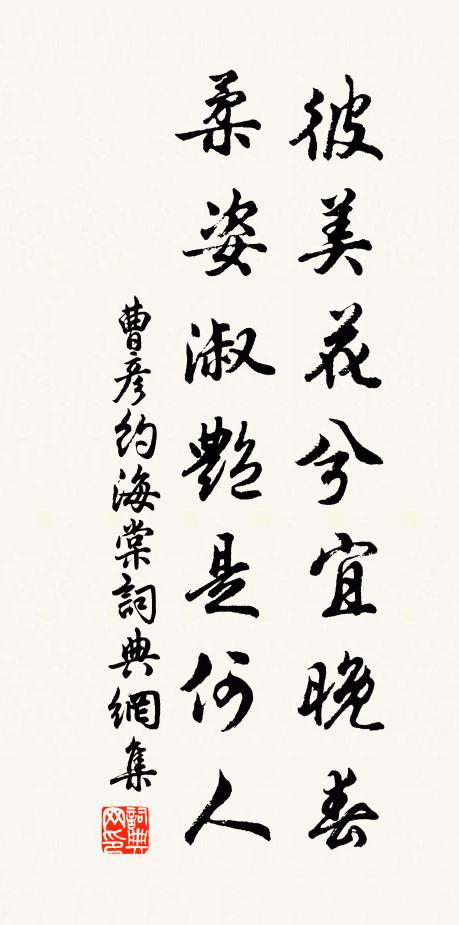 彼美花兮宜晚春
柔姿淑艷是何人
曹彥約海棠詞典網集
詞典網印